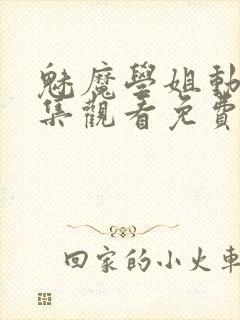 魅魔學姐動
集觀看免費
回家的小火車